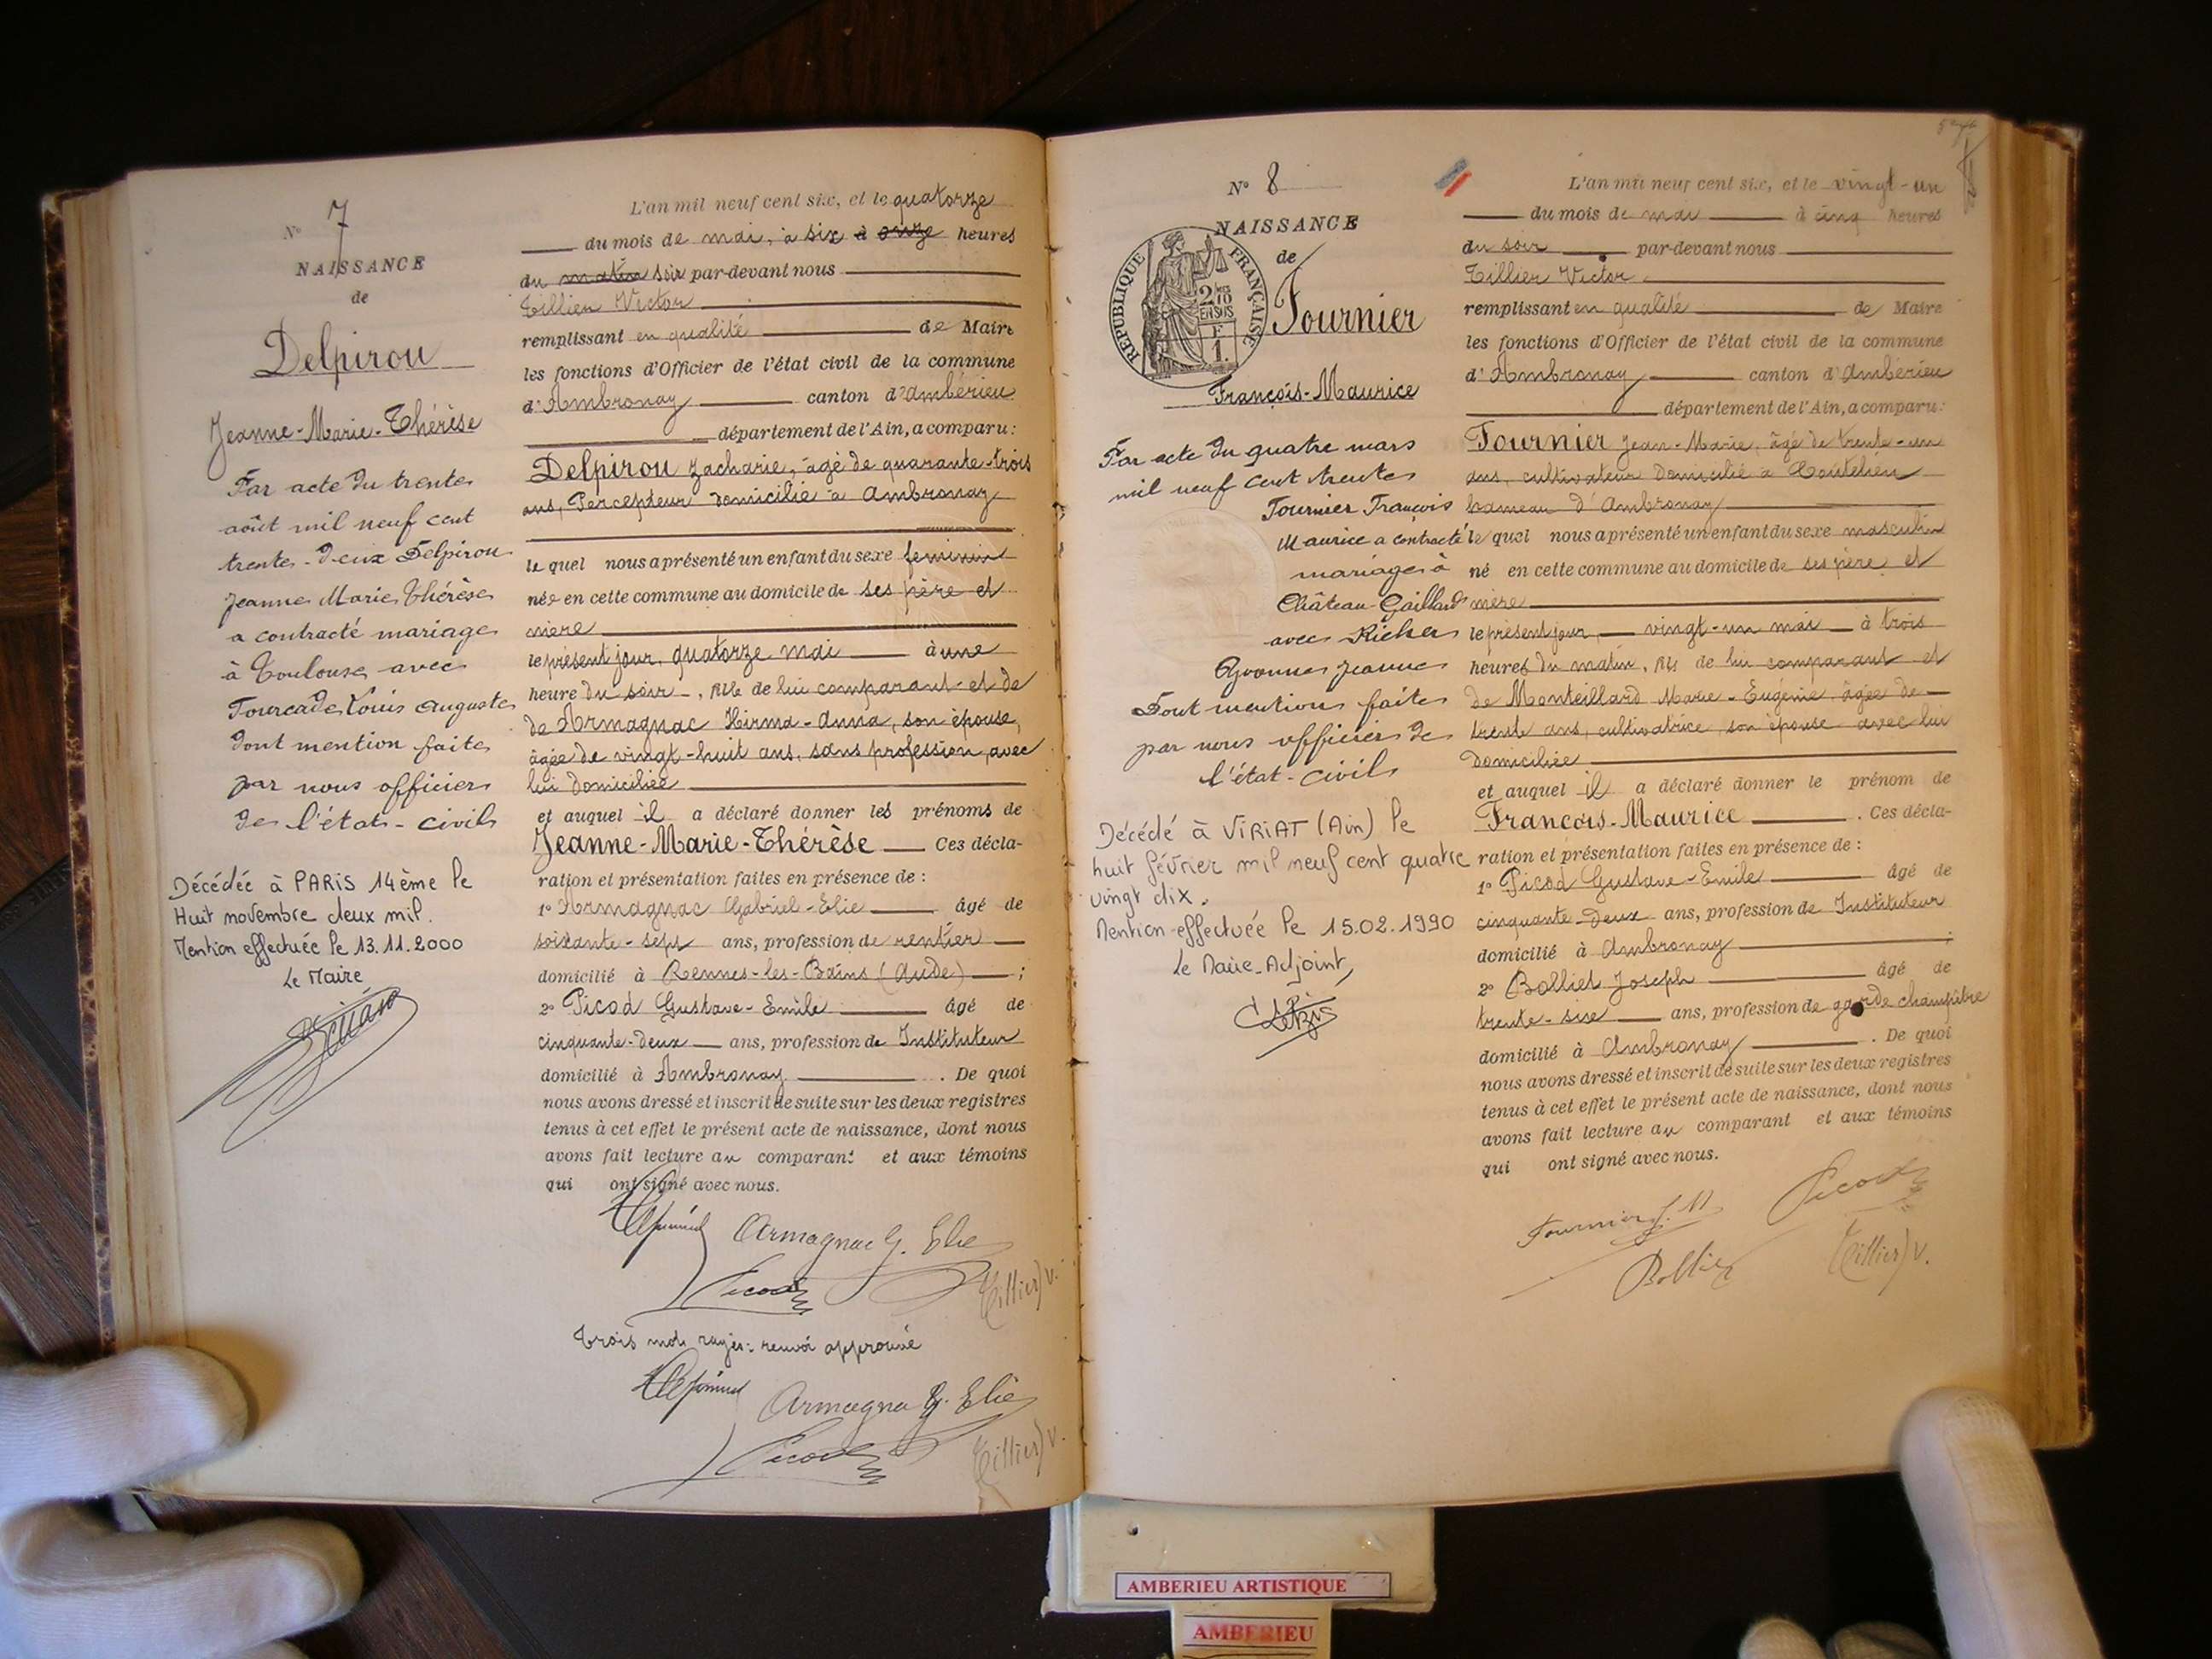 N° 7
NAISSANCE
de
Delpirou
Jeanne-Marie-Thérèse
Par acte du trente
août mil neuf cent
trente-deux Delpirou
Jeanne Marie Thérèse
a contracté mariage
à Toulouse avec
Fourcade Louis Auguste
dont mention faite
par nous officier
de l'état-civil
Décédée à PARIS 14ème le
Huit novembre deux mil.
Mention effectuée le 13.11.2000
Le Maire
L'an mil neuf cent six, et le quatorze
du mois de mai, à six à onze heures
du matin soir par-devant nous
Tillier Victor
remplissant en qualité de Maire
les fonctions d'Officier de l'état civil de la commune
d'Ambronay canton d'Ambérieu
département de l'Ain, a comparu :
Delpirou Zacharie, âgé de quarante-trois
ans, Percepteur domicilié à Ambronay
lequel nous a présenté un enfant du sexe feminin
née en cette commune au domicile de ses père et
mère
le présent jour, quatorze mai à une
heure du soir, fille de lui comparant et de
de Armagnac Hirma-Anna, son épouse,
âgée de vingt-huit ans, sans profession, avec
lui domiciliée
et auquel il a déclaré donner les prénoms de
Jeanne-Marie-Thérèse Ces décla-
ration et présentation faites en présence de :
1° Armagnac Gabriel-Elie âgé de
soixante-sept ans, profession de rentier
domicilié à Rennes-les-Bains (Aude) ;
2° Picod Gustave-Emile âgé de
cinquante-deux ans, profession de Instituteur
domicilié à Ambronay . De quoi
nous avons dressé et inscrit de suite sur les deux registres
tenus à cet effet le présent acte de naissance, dont nous
avons fait lecture au comparant et aux témoins
qui ont signé avec nous.
Armagnac G. Elie
Picod
Tillier V.
Trois mots rayés: renvoi approuvé
Armagna G. Elie
Picod
Tillier V.
N° 8
NAISSANCE
de
RÉPUBLIQUE FRANÇAISE
2/10
EN SUS
F
1.
Fournier
François-Maurice
Par acte du quatre mars
mil neuf cent trente
Fournier François
Maurice a contracté
mariage à
Château-Gaillard
avec Richer
Yvonne Jeanne
Dont mention faite
par nous officier de
l'état-civil
Décédé à VIRIAT (Ain) le
huit février mil neuf cent quatre
vingt dix.
Mention effectuée le 15.02.1990
Le Maire-Adjoint,
L'an mil neuf cent six, et le vingt-un
du mois de mai à cinq heures
du soir par-devant nous
Tillier Victor
remplissant en qualité de Maire
les fonctions d'Officier de l'état civil de la commune
d'Ambronay canton d'Ambérieu
département de l'Ain, a comparu :
Fournier Jean-Marie, âgé de trente-un
ans, cultivateur domicilié à
hameau d'Ambronay
le quel nous a présenté un enfant du sexe masculin
né en cette commune au domicile de ses père et
mère
le présent jour, vingt-un mai à trois
heures du matin, fils de lui comparant et
de Monteillard Marie-Eugénie, âgée de
trente ans, cultivatrice, son épouse avec lui
domiciliée
et auquel il a déclaré donner le prénom de
François-Maurice . Ces décla-
ration et présentation faites en présence de :
1° Picod Gustave-Emile âgé de
cinquante-deux ans, profession de Instituteur
domicilié à Ambronay ;
2° Bolliet Joseph âgé de
trente-six ans, profession de garde champêtre
domicilié à Ambronay . De quoi
nous avons dressé et inscrit de suite sur les deux registres
tenus à cet effet le présent acte de naissance, dont nous
avons fait lecture au comparant et aux témoins
qui ont signé avec nous.
Fournier J. M
Picod
Bolliet
Tillier V.
AMBERIEU ARTISTIQUE
AMBERIEU